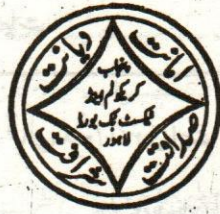 امانت
دیانت
صداقت
شرافت
پنجاب
کریکولم اینڈ
ٹیکسٹ بک بورڈ
لاہور